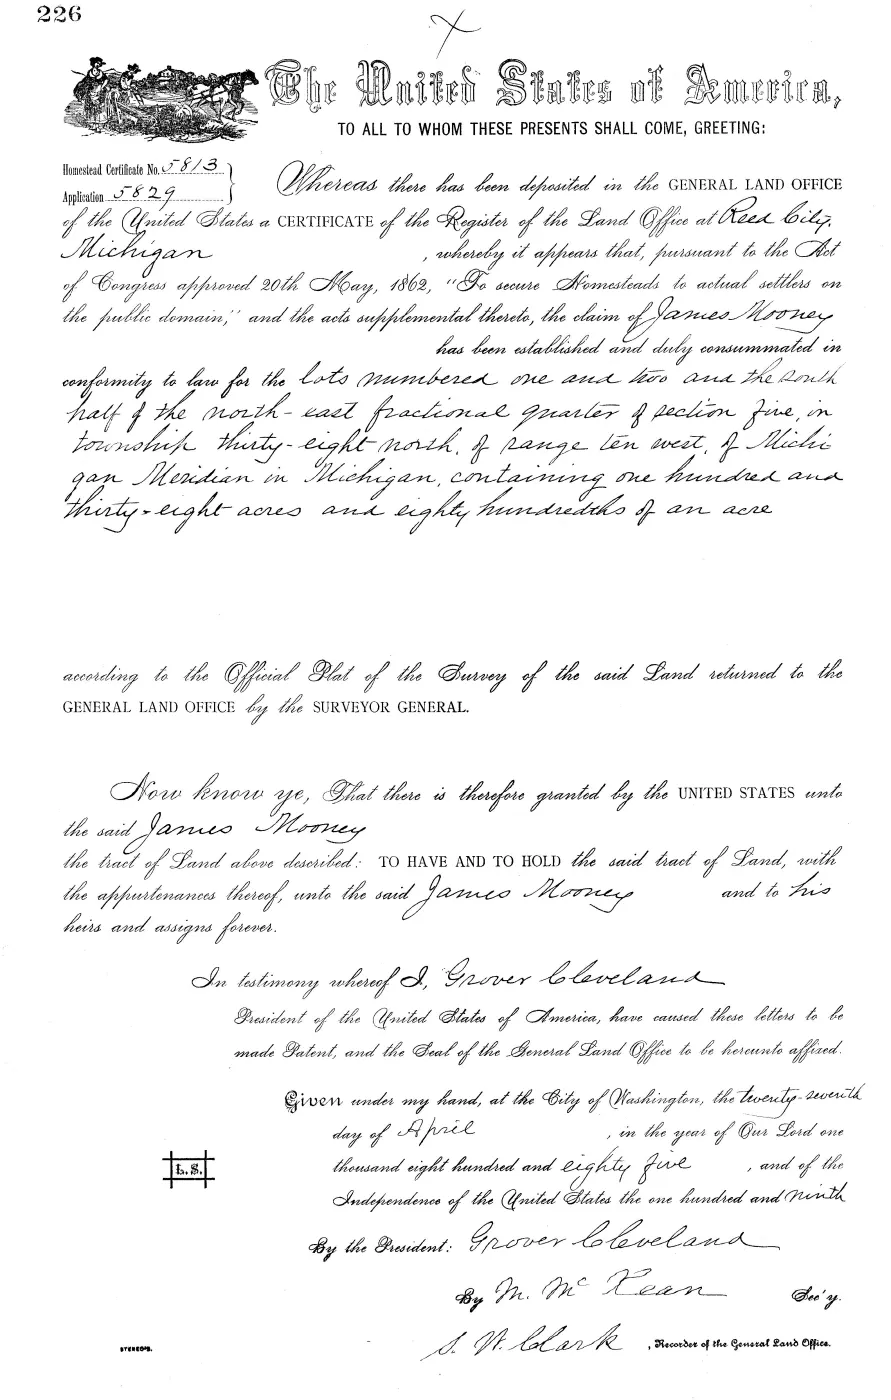 226
The United States of America,
TO ALL TO WHOM THESE PRESENTS SHALL COME, GREETING:
Homestead Certificate No. 5813
Application 5829
Whereas there has been deposited in the GENERAL LAND OFFICE
of the United States a CERTIFICATE of the Register of the Land Office at Reed City,
Michigan , whereby it appears that, pursuant to the Act
of Congress approved 20th May, 1862, "To secure Homesteads to actual settlers on
the public domain," and the acts supplemental thereto, the claim of James Mooney
has been established and duly consummated in
conformity to law for the lots numbered one and two and the south
half of the north-east fractional quarter of section five, in
township thirty-eight north, of range ten west, of Michi
gan Meridian in Michigan, containing one hundred and
thirty-eight acres and eighty hundredths of an acre
according to the Official Plat of the Survey of the said Land returned to the
GENERAL LAND OFFICE by the SURVEYOR GENERAL.
Now know ye, That there is therefore granted by the UNITED STATES unto
the said James Mooney
the tract of Land above described: TO HAVE AND TO HOLD the said tract of Land, with
the appurtenances thereof, unto the said James Mooney and to his
heirs and assigns forever.
In testimony whereof I, Grover Cleveland
President of the United States of America, have caused these letters to be
made Patent, and the Seal of the General Land Office to be hereunto affixed.
Given under my hand, at the City of Washington, the twenty-seventh
day of April , in the year of Our Lord one
thousand eight hundred and eighty five , and of the
L.S.
Independence of the United States the one hundred and ninth
By the President: Grover Cleveland
By M. McKean Sec'y.
S. W. Clark , Recorder of the General Land Office.
STEREO'S.